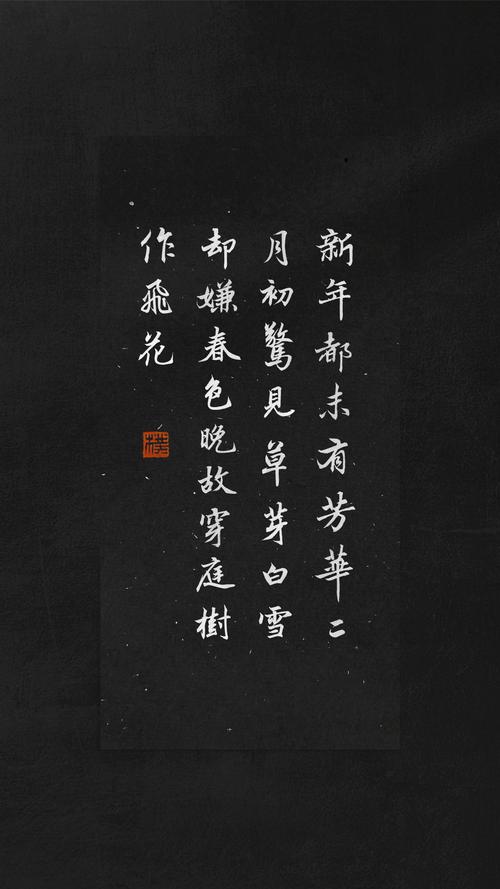 新年都未有芳華二
月初驚見草芽白雪
却嫌春色晚故穿庭樹
作飛花